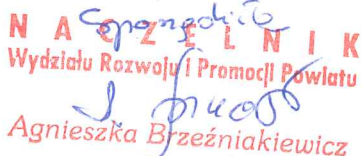 Sporządziła
NACZELNIK
Wydziału Rozwoju i Promocji Powiatu
Agnieszka Brzeźniakiewicz